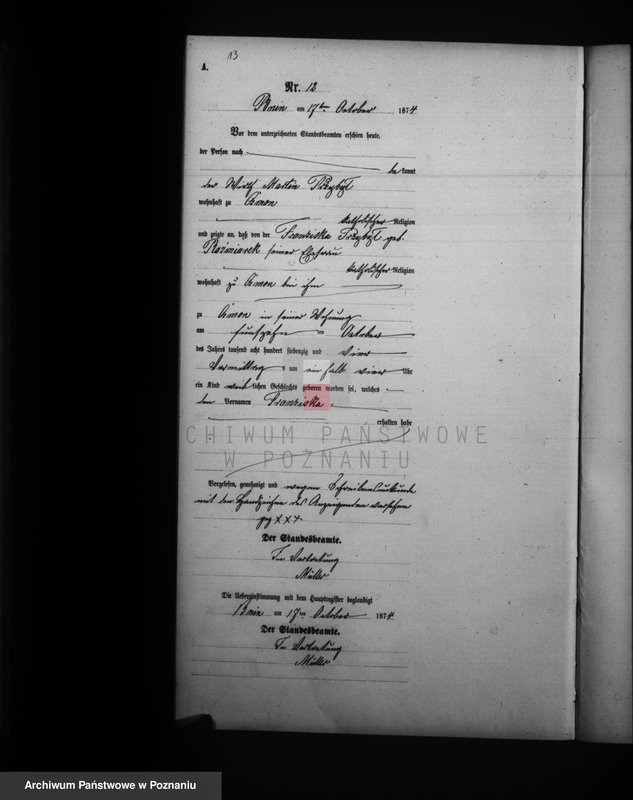 13
A.
Nr. 12
Bnin am 17ten October 1874
Vor dem unterzeichneten Standesbeamten erschien heute,
der Person nach
bekannt
der Wirth Martin Przybyl
wohnhaft zu Cmon
katholischer Religion
und zeigte an, daß von der Franziska Przybyl geb.
Kazmierek seiner Ehefrau
katholischer Religion
wohnhaft zu Cmon bei ihm
zu Cmon in seiner Wohnung
am fünfzehn ten October
des Jahres tausend acht hundert siebenzig und vier
Vormittag s um ein halb vier Uhr
ein Kind weib lichen Geschlechts geboren worden sei, welches
den Vornamen Franziska
erhalten habe
ARCHIWUM PAŃSTWOWE
W POZNANIU
Vorgelesen, genehmigt und wegen Schreibensunkunde
mit den Handzeichen des Anzeigenden versehen
gez XXX
Der Standesbeamte.
In Vertretung
Müller
Die Uebereinstimmung mit dem Hauptregister beglaubigt
Bnin am 17ten October 1874
Der Standesbeamte.
In Vertretung
Müller
Archiwum Państwowe w Poznaniu